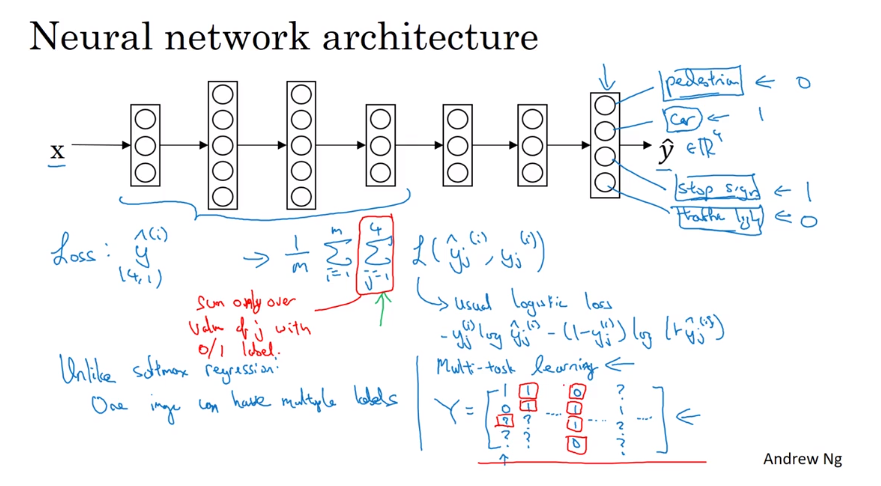 Neural network architecture
pedestrian ← 0
car ← 1
x
ŷ ∈ ℝ⁴
stop sign ← 1
traffic light ← 0
Loss: ŷ^(i) → 1/m ∑_{i=1}^{m} ∑_{j=1}^{4} L(ŷ_j^(i), y_j^(i))
(4,1)
Sum only over
value of j with
0/1 label.
↳ usual logistic loss
-y_j^(i) log ŷ_j^(i) - (1-y_j^(i)) log (1-ŷ_j^(i))
Unlike softmax regression:
One image can have multiple labels
Multi-task learning ←
Y = [
1 1 0 ?
0 1 ... 1 1
? ? 1 ... ? ...
? ? 0 ?
] ←
Andrew Ng